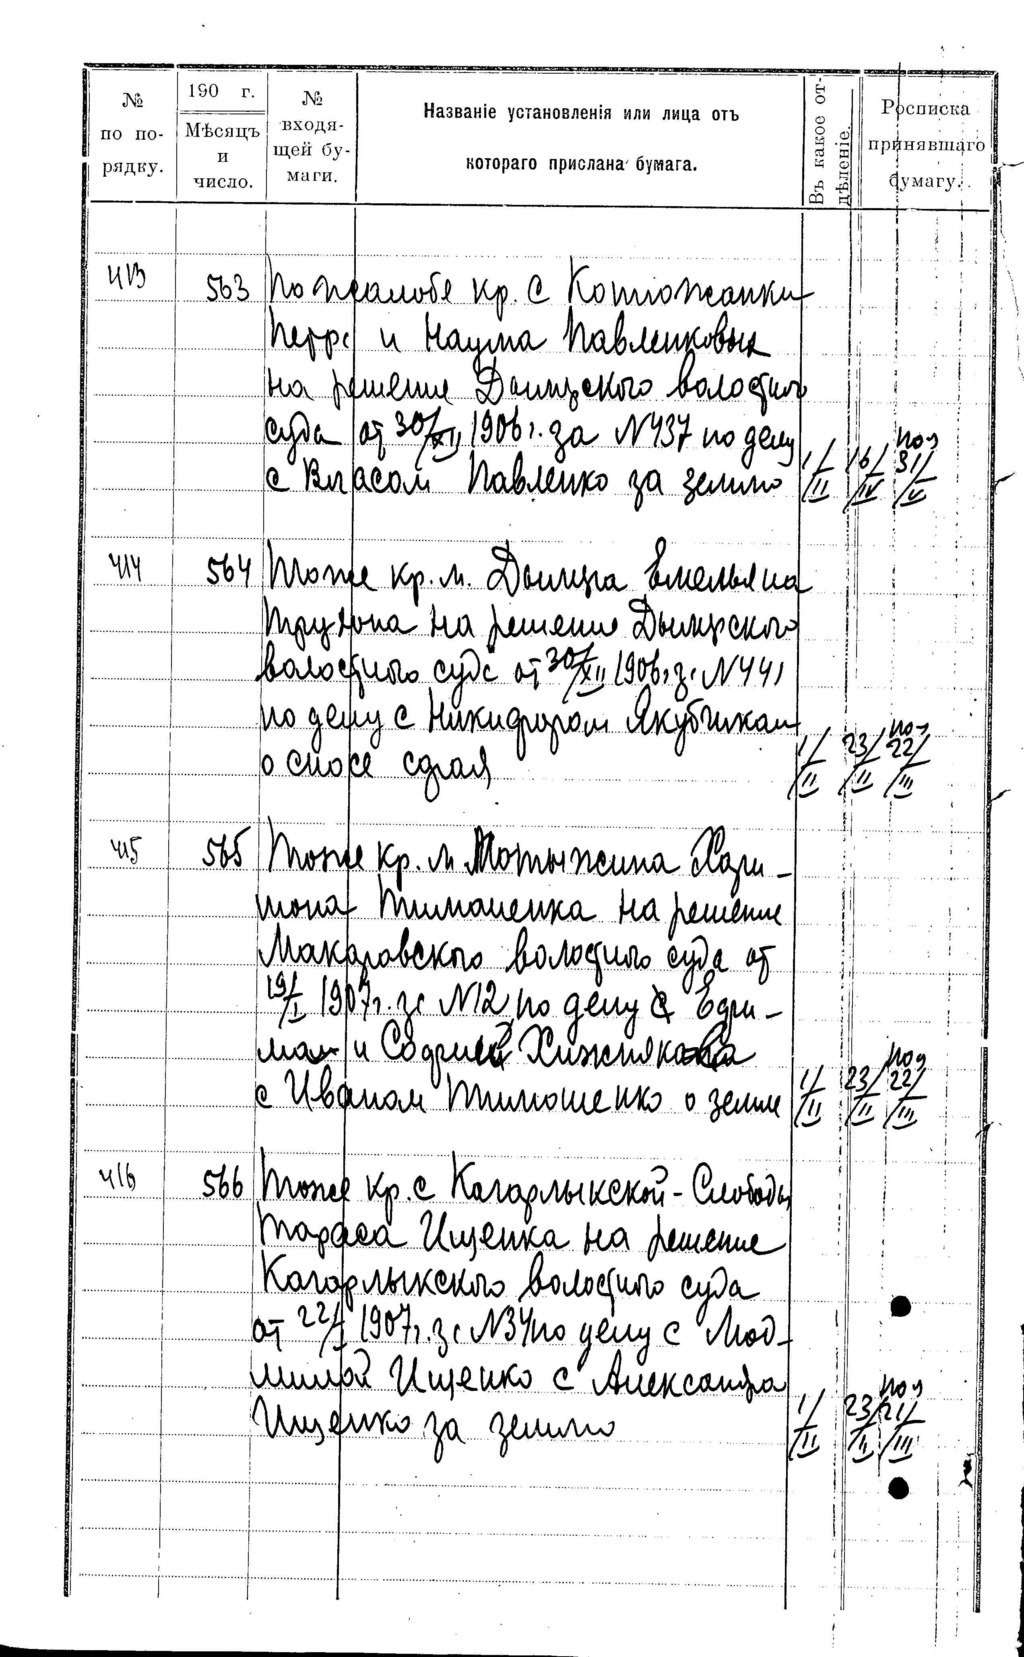 № по порядку.
190 г.
Мѣсяцъ и число.
№ входящей бумаги.
Названіе установленія или лица отъ
котораго прислана бумага.
Въ какое отдѣленіе.
Росписка принявшаго бумагу.
413 563 По жалобе кр. с Котюжанки
Петра и Наума Павленковых
на решение Дымерского волостного
суда от 30/XII 1906 г. за N437 по делу
с Власом Павленко за землю 1/II 16/IV 31/V
414 564 Тоже кр. м. Дымера Емельяна
Трухона на решение Дымерского
волостного суда от 30/XII 1906 г. за N441
по делу с Никифором Якубчиком
о сносе сарая 1/II 23/II 22/III
415 565 Тоже кр. м Мотыжина Хари-
тона Тимошенка на решение
Макаровского волостного суда от
19/I 1907 г. за N12 по делу с Ефи-
мом и Софией Хижняковa
с Иваном Тимошенко о земле 1/II 23/II 22/III
416 566 Тоже кр. с Кагарлыкской-Слободы
Тараса Ищенка на решение
Кагарлыкского волостного суда
от 22/I 1907 г. за N34 по делу с Люд-
милой Ищенко с Александра
Ищенко за землю 1/II 23/II 21/III